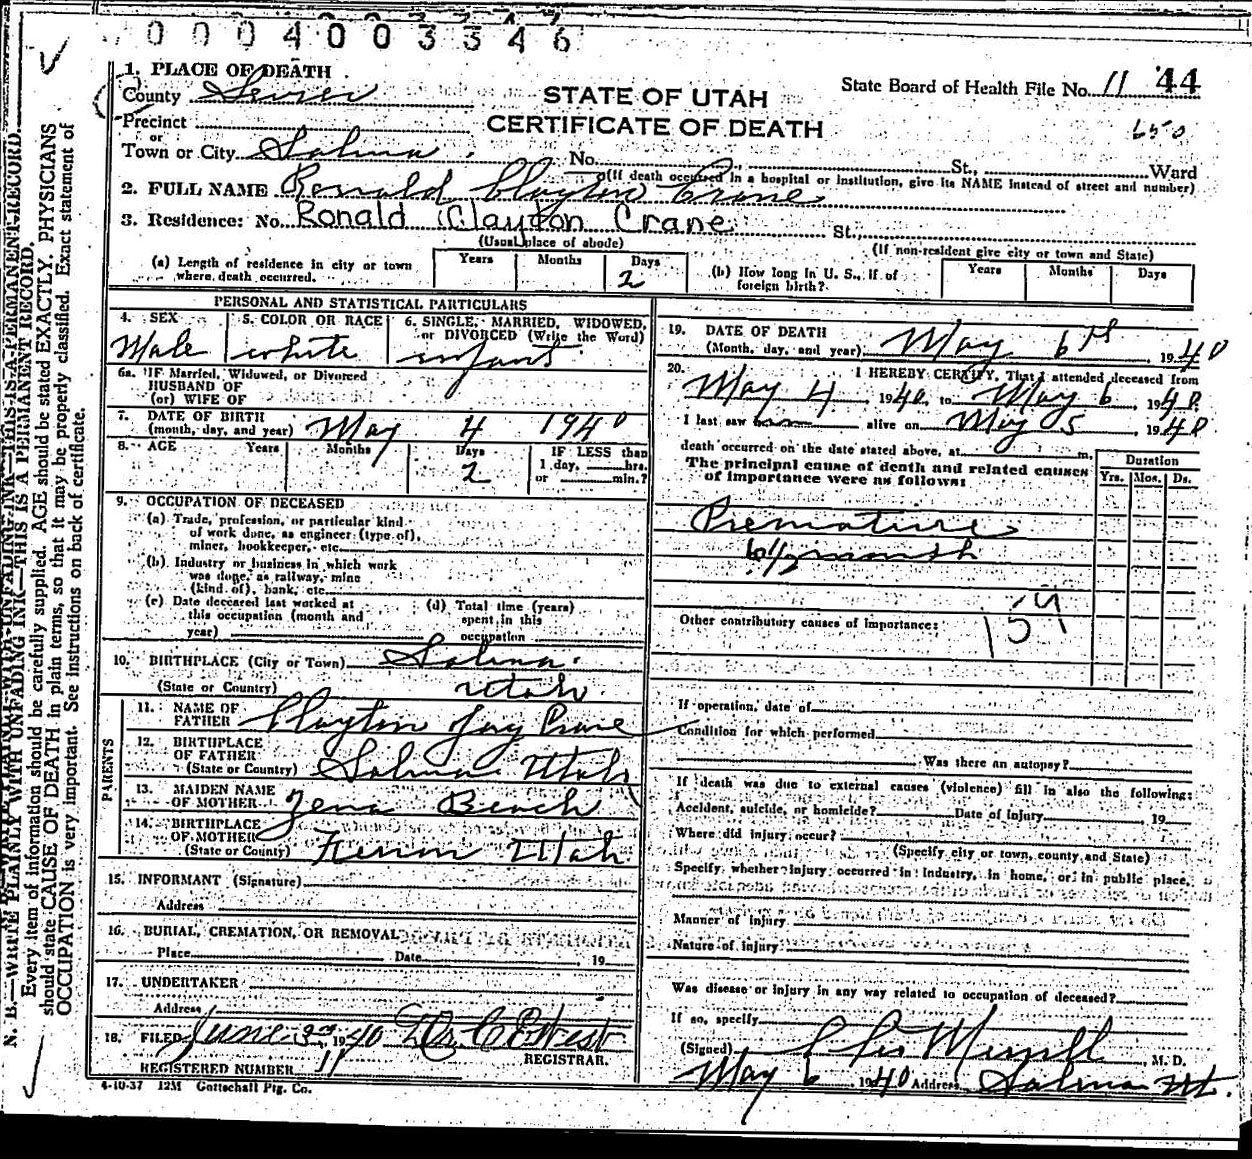 0004003346
1. PLACE OF DEATH
County Sevier
State Board of Health File No. 11 44
STATE OF UTAH
CERTIFICATE OF DEATH
650
Precinct
or
Town or City Salina. No. St., Ward
(If death occurred in a hospital or institution, give its NAME instead of street and number)
2. FULL NAME Ronald Clayton Crane
3. Residence: No. Ronald Clayton Crane St.,
(Usual place of abode) (If non-resident give city or town and State)
(a) Length of residence in city or town where death occurred. Years Months Days 2
(b) How long in U. S., if of foreign birth? Years Months Days
PERSONAL AND STATISTICAL PARTICULARS
4. SEX Male
5. COLOR OR RACE white
6. SINGLE, MARRIED, WIDOWED, or DIVORCED (Write the Word) infant
6a. IF Married, Widowed, or Divorced
HUSBAND OF
(or) WIFE OF
7. DATE OF BIRTH
(month, day, and year) May 4 1940
8. AGE Years Months Days 2 IF LESS than
1 day, hrs.
or min.?
9. OCCUPATION OF DECEASED
(a) Trade, profession, or particular kind
of work done, as engineer (type of),
miner, bookkeeper, etc.
(b) Industry or business in which work
was done, as railway, mine
(kind of), bank, etc.
(c) Date deceased last worked at
this occupation (month and
year)
(d) Total time (years)
spent in this
occupation
10. BIRTHPLACE (City or Town) Salina.
(State or Country) Utah
PARENTS
11. NAME OF
FATHER Clayton Jay Crane
12. BIRTHPLACE
OF FATHER
(State or Country) Salina Utah
13. MAIDEN NAME
OF MOTHER Zena Beach
14. BIRTHPLACE
OF MOTHER
(State or County) Ferron Utah
15. INFORMANT (Signature)
Address
16. BURIAL, CREMATION, OR REMOVAL
Place Date 19
17. UNDERTAKER
Address
18. FILED June 3rd, 1940 Dr. C E West
REGISTRAR.
REGISTERED NUMBER 11
4-10-37 12M Gottschall Ptg. Co.
19. DATE OF DEATH
(Month, day, and year) May 6th, 1940
20. I HEREBY CERTIFY, That I attended deceased from
May 4, 1940, to May 6, 1940.
I last saw him alive on May 5, 1940
death occurred on the date stated above, at m.
The principal cause of death and related causes
of importance were as follows:
Duration
Yrs. Mos. Ds.
Premature
6½ month
159
Other contributory causes of importance:
If operation, date of
Condition for which performed
Was there an autopsy?
If death was due to external causes (violence) fill in also the following:
Accident, suicide, or homicide? Date of Injury 19
Where did injury occur?
(Specify city or town, county and State)
Specify whether injury occurred in industry, in home, or in public place.
Manner of injury
Nature of injury
Was disease or injury in any way related to occupation of deceased?
If so, specify
(Signed) Merrill, M. D.
May 6, 1940 Address Salina Ut.
N. B.—WRITE PLAINLY WITH UNFADING INK—THIS IS A PERMANENT RECORD.
Every item of information should be carefully supplied. AGE should be stated EXACTLY. PHYSICIANS
should state CAUSE OF DEATH in plain terms, so that it may be properly classified. Exact statement of
OCCUPATION is very important. See instructions on back of certificate.